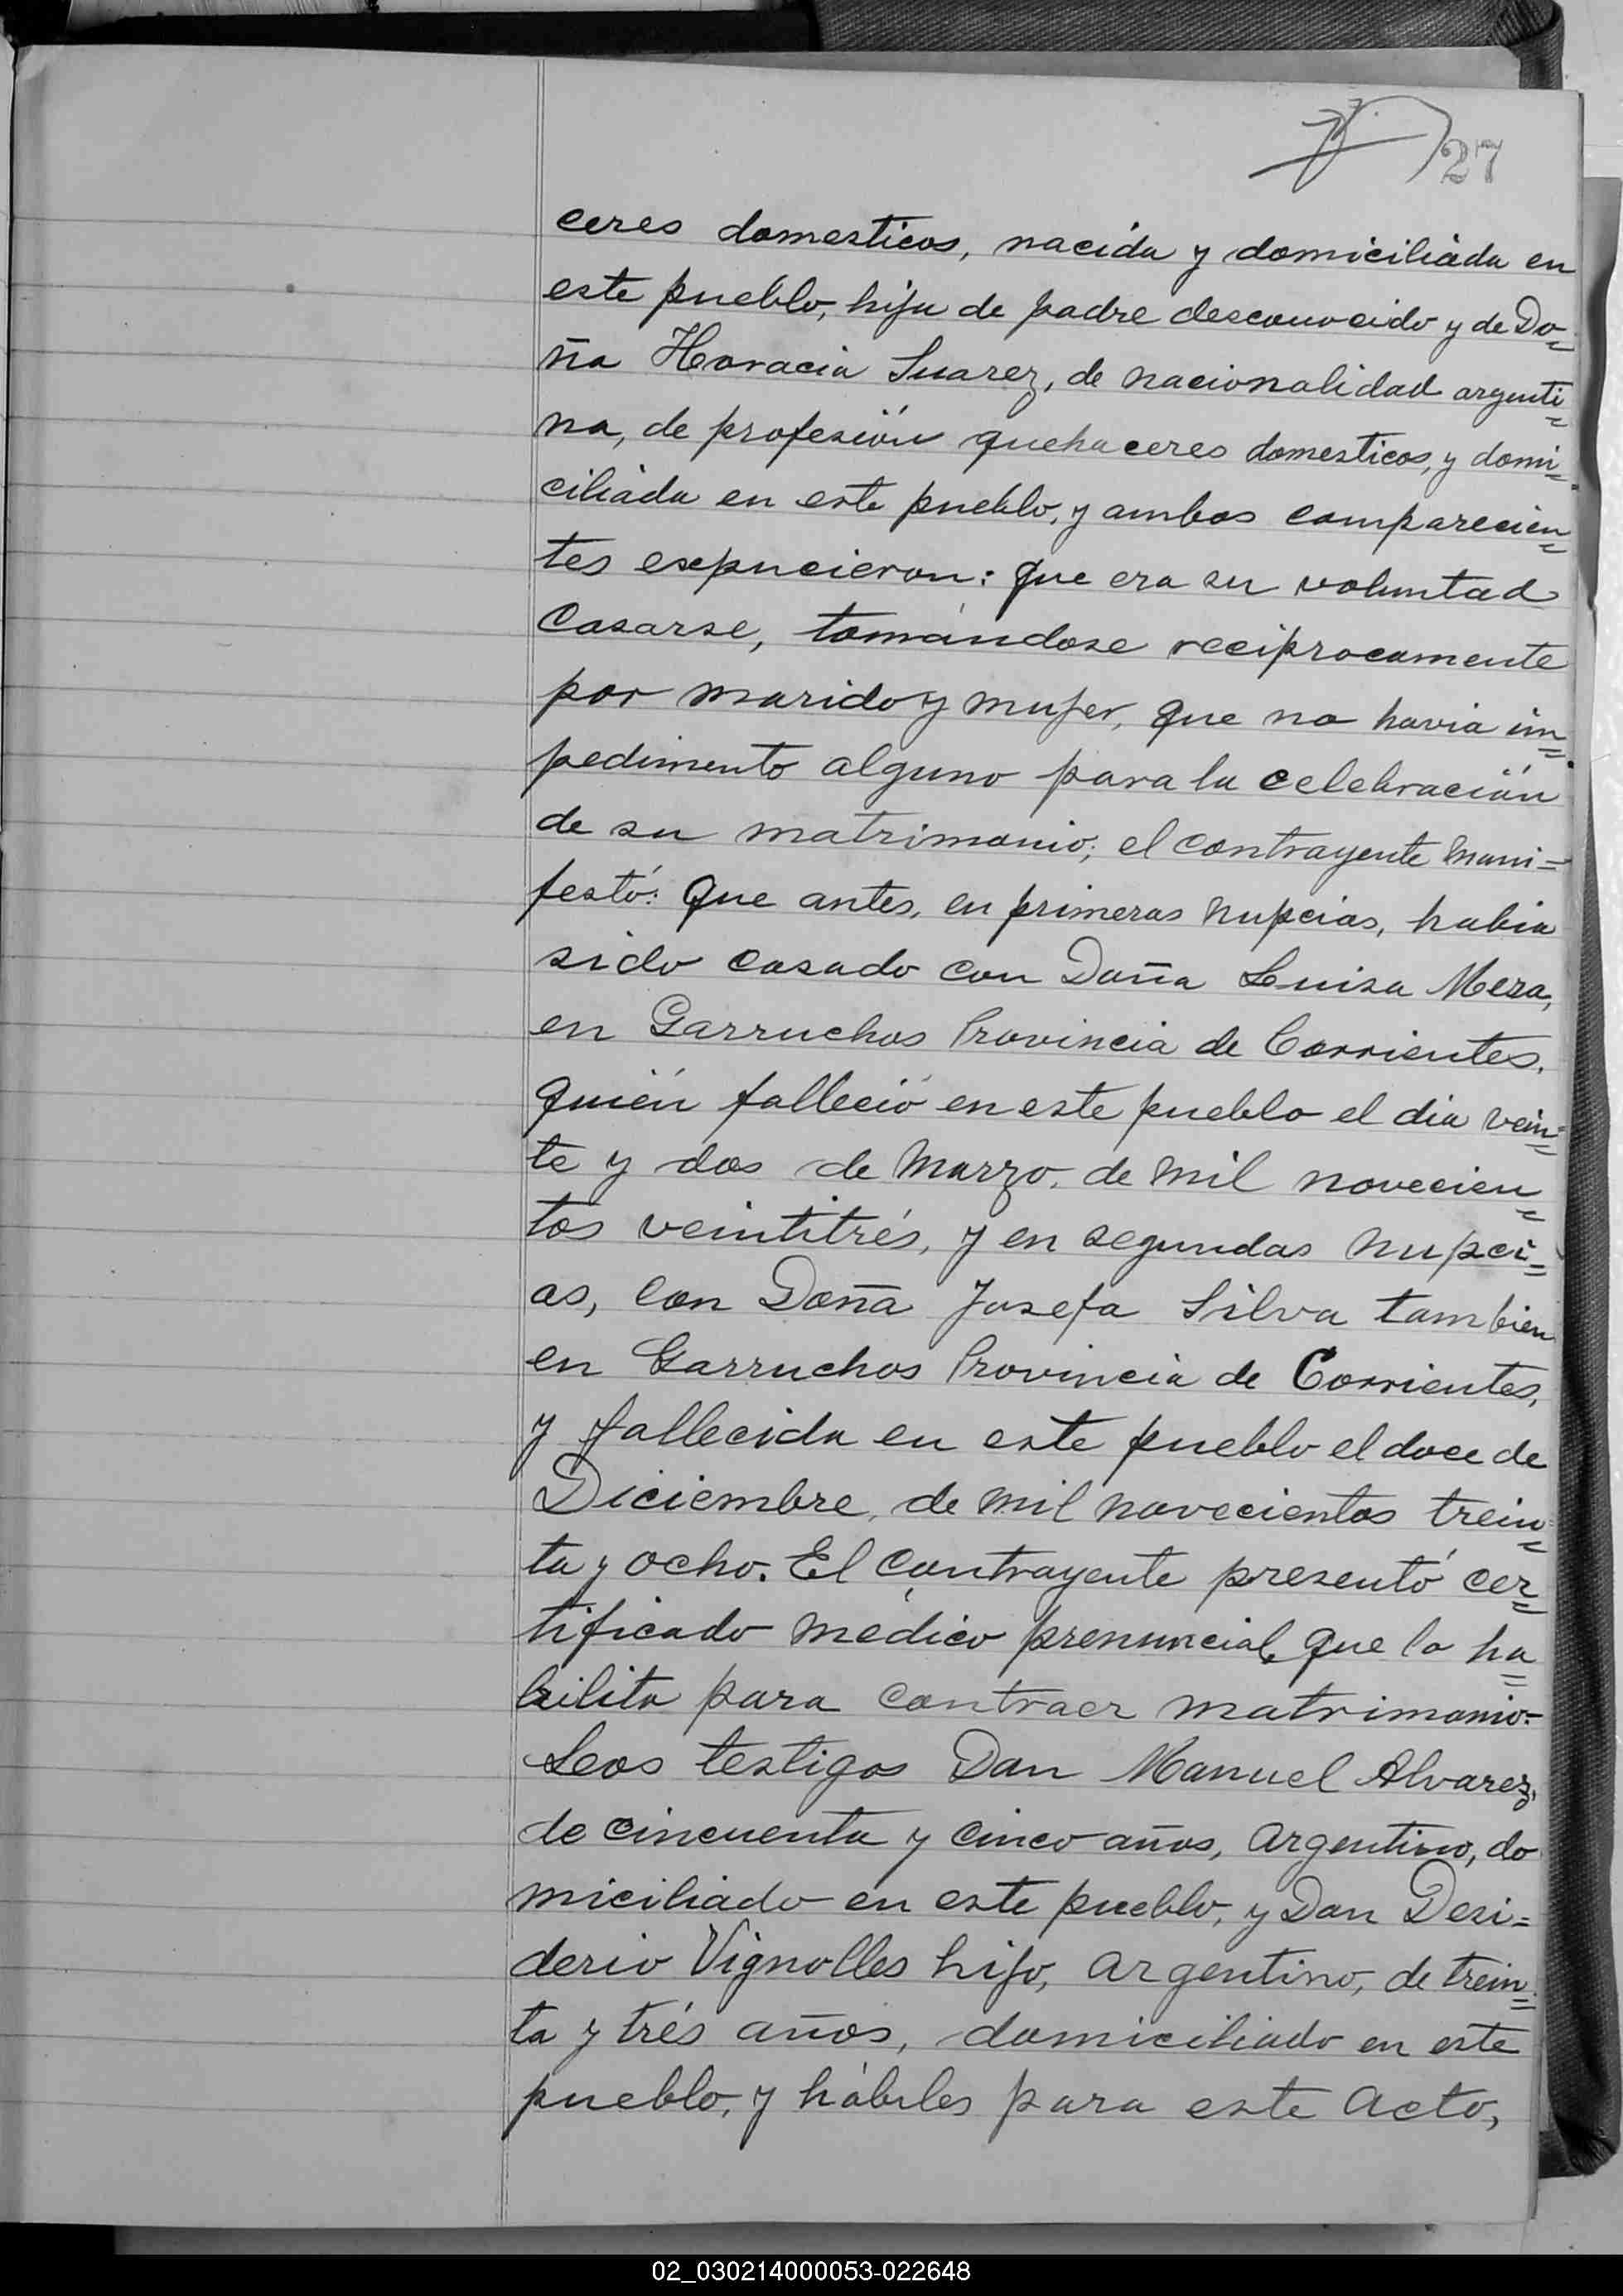 27
ceres domesticos, nacida y domiciliada en
este pueblo, hija de padre desconocido y de Do=
ña Horacia Suarez, de nacionalidad argenti=
na, de profesión quehaceres domesticos, y domi=
ciliada en este pueblo, y ambos comparecien=
tes expucieron: que era su voluntad
Casarse, tomándose reciprocamente
por marido y mujer, que no havia im=
pedimento alguno para la celebración
de su matrimonio; el contrayente mani=
festó: Que antes, en primeras nupcias, habia
sido casado con Doña Luisa Meza,
en Garruchos Provincia de Corrientes,
quién falleció en este pueblo el dia vein=
te y dos de Marzo, de mil novecien=
tos veintitrés, y en segundas nupci=
as, con Doña Josefa Silva tambien
en Garruchos Provincia de Corrientes,
y fallecida en este pueblo el doce de
Diciembre, de mil novecientos trein=
ta y ocho. El contrayente presentó cer=
tificado medico prenuncial, que lo ha=
bilita para contraer matrimonio.-
Los testigos Don Manuel Alvarez,
de cincuenta y cinco años, argentino, do
miciliado en este pueblo, y Don Desi=
derio Vignolles hijo, argentino, de trein=
ta y trés años, domiciliado en este
pueblo, y hábiles para este acto,
02_030214000053-022648